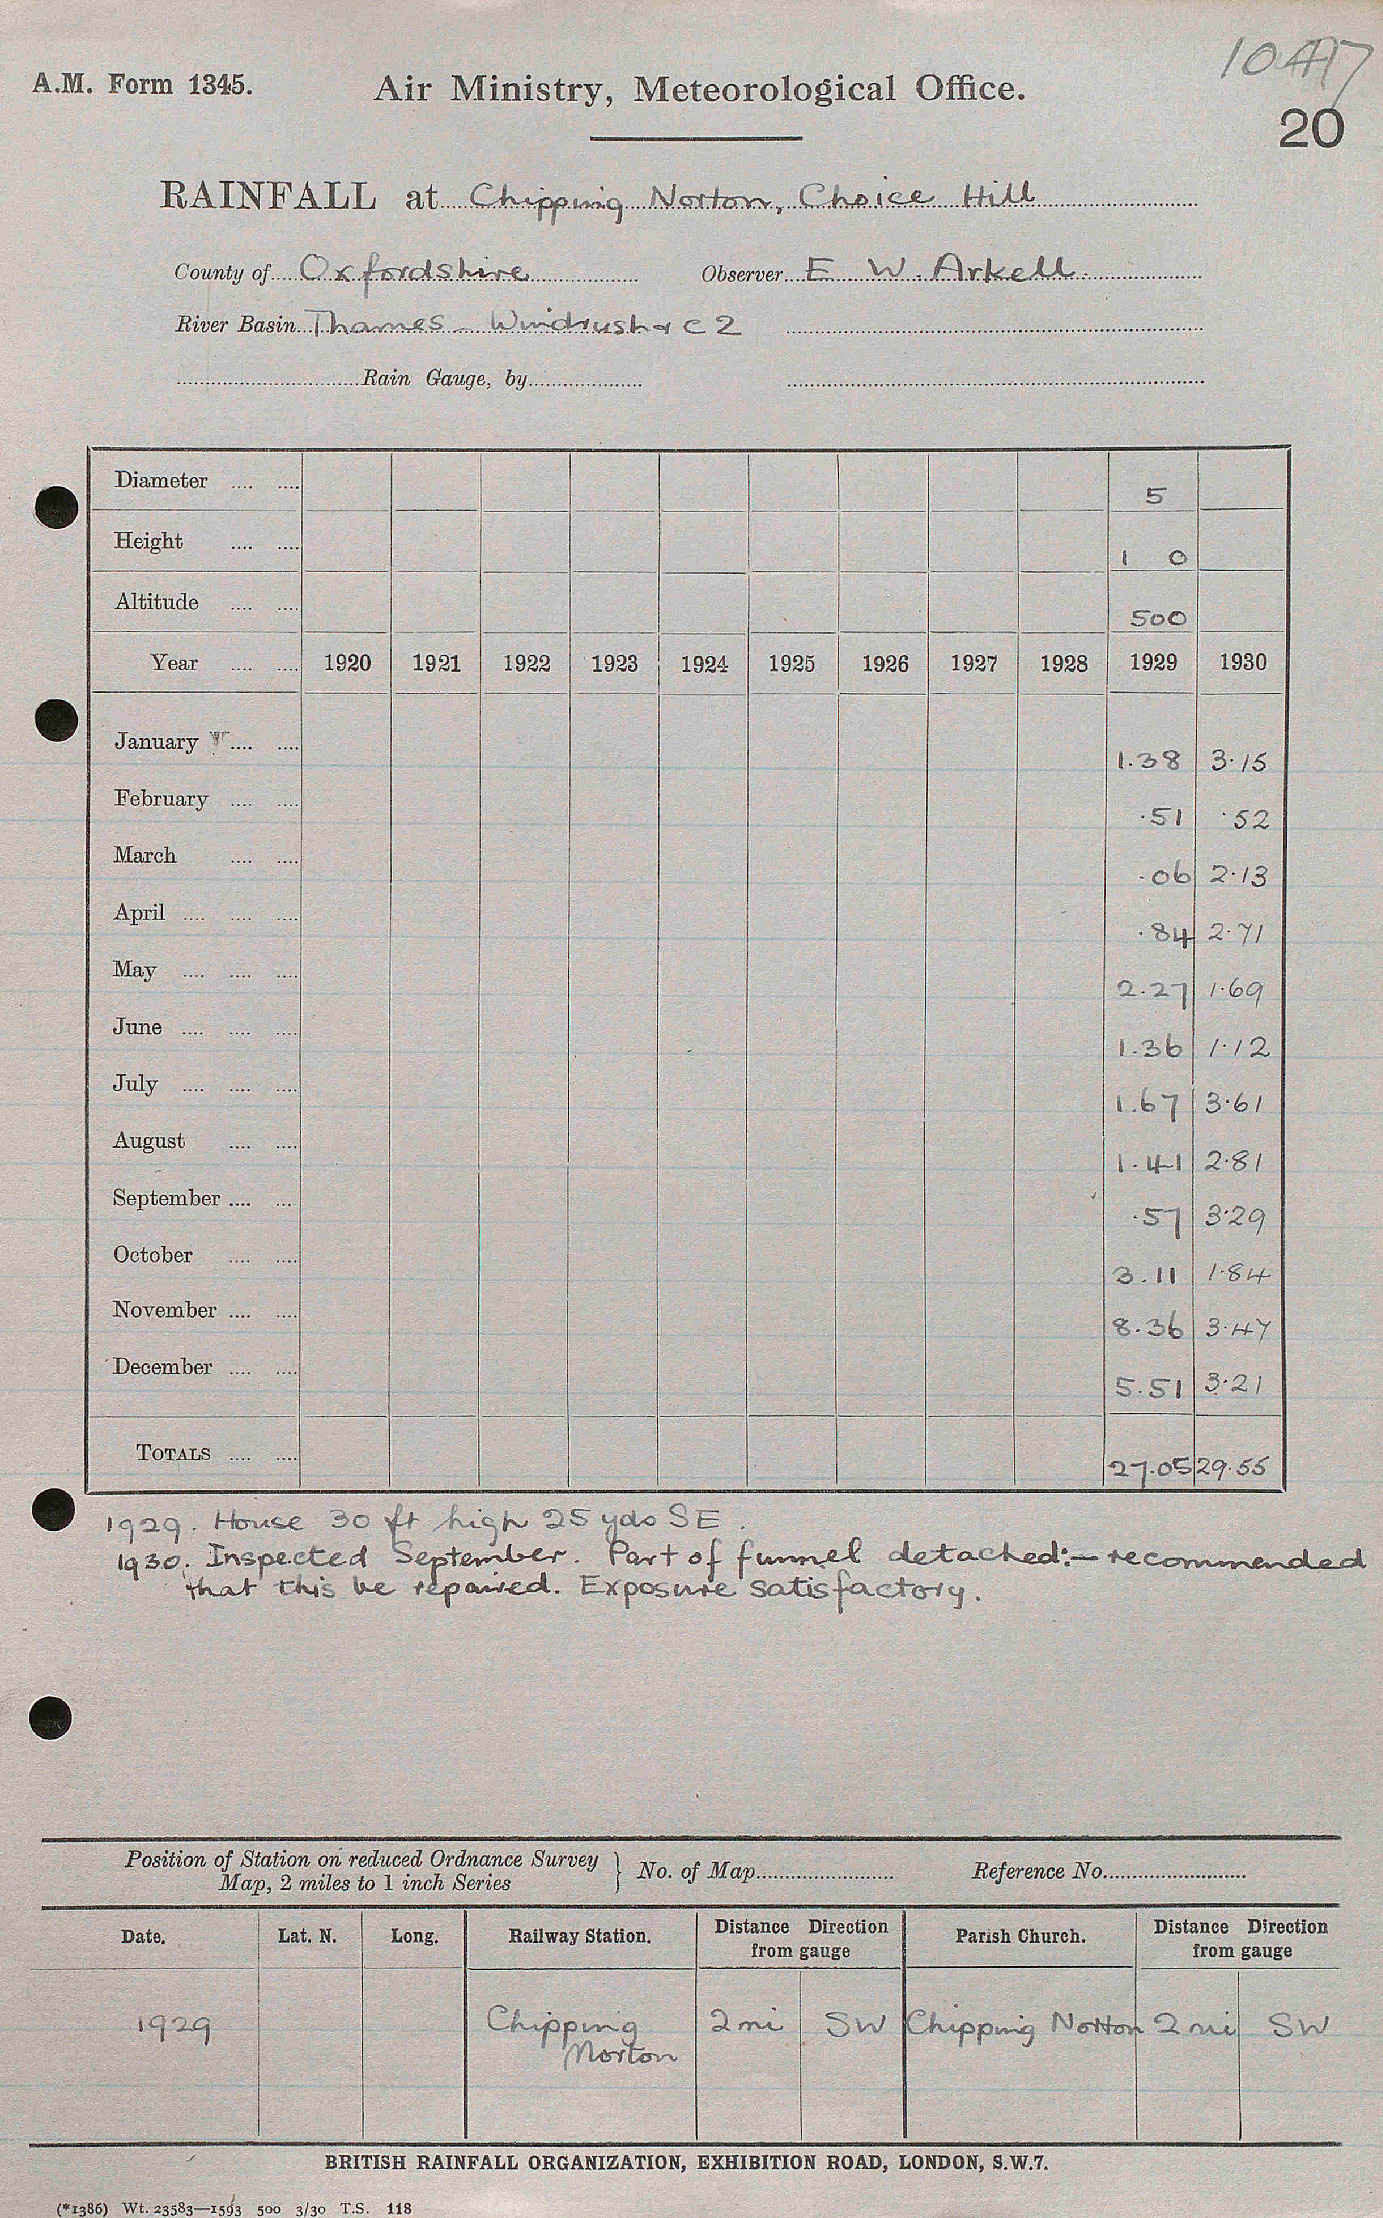 10417
A.M. Form 1345. Air Ministry, Meteorological Office.
20
RAINFALL at Chipping Norton, Choice Hill
County of Oxfordshire Observer E. W. Arkell.
River Basin Thames - Windrush & C 2
Rain Gauge, by
Diameter 5
Height 1 0
Altitude 500
Year 1920 1921 1922 1923 1924 1925 1926 1927 1928 1929 1930
January 1.38 3.15
February .51 .52
March .06 2.13
April .84 2.71
May 2.27 1.69
June 1.36 1.12
July 1.67 3.61
August 1.41 2.81
September .57 3.29
October 3.11 1.84
November 8.36 3.47
December 5.51 3.21
TOTALS 27.05 29.55
1929. House 30 ft high 25 yds SE.
1930. Inspected September. Part of funnel detached:— recommended
that this be repaired. Exposure satisfactory.
Position of Station on reduced Ordnance Survey
Map, 2 miles to 1 inch Series } No. of Map Reference No.
Date. Lat. N. Long. Railway Station. Distance Direction from gauge Parish Church. Distance Direction from gauge
1929 Chipping Norton 2 mi SW Chipping Norton 2 mi SW
BRITISH RAINFALL ORGANIZATION, EXHIBITION ROAD, LONDON, S.W.7.
(*1386) Wt. 23583—1593 500 3/30 T.S. 118